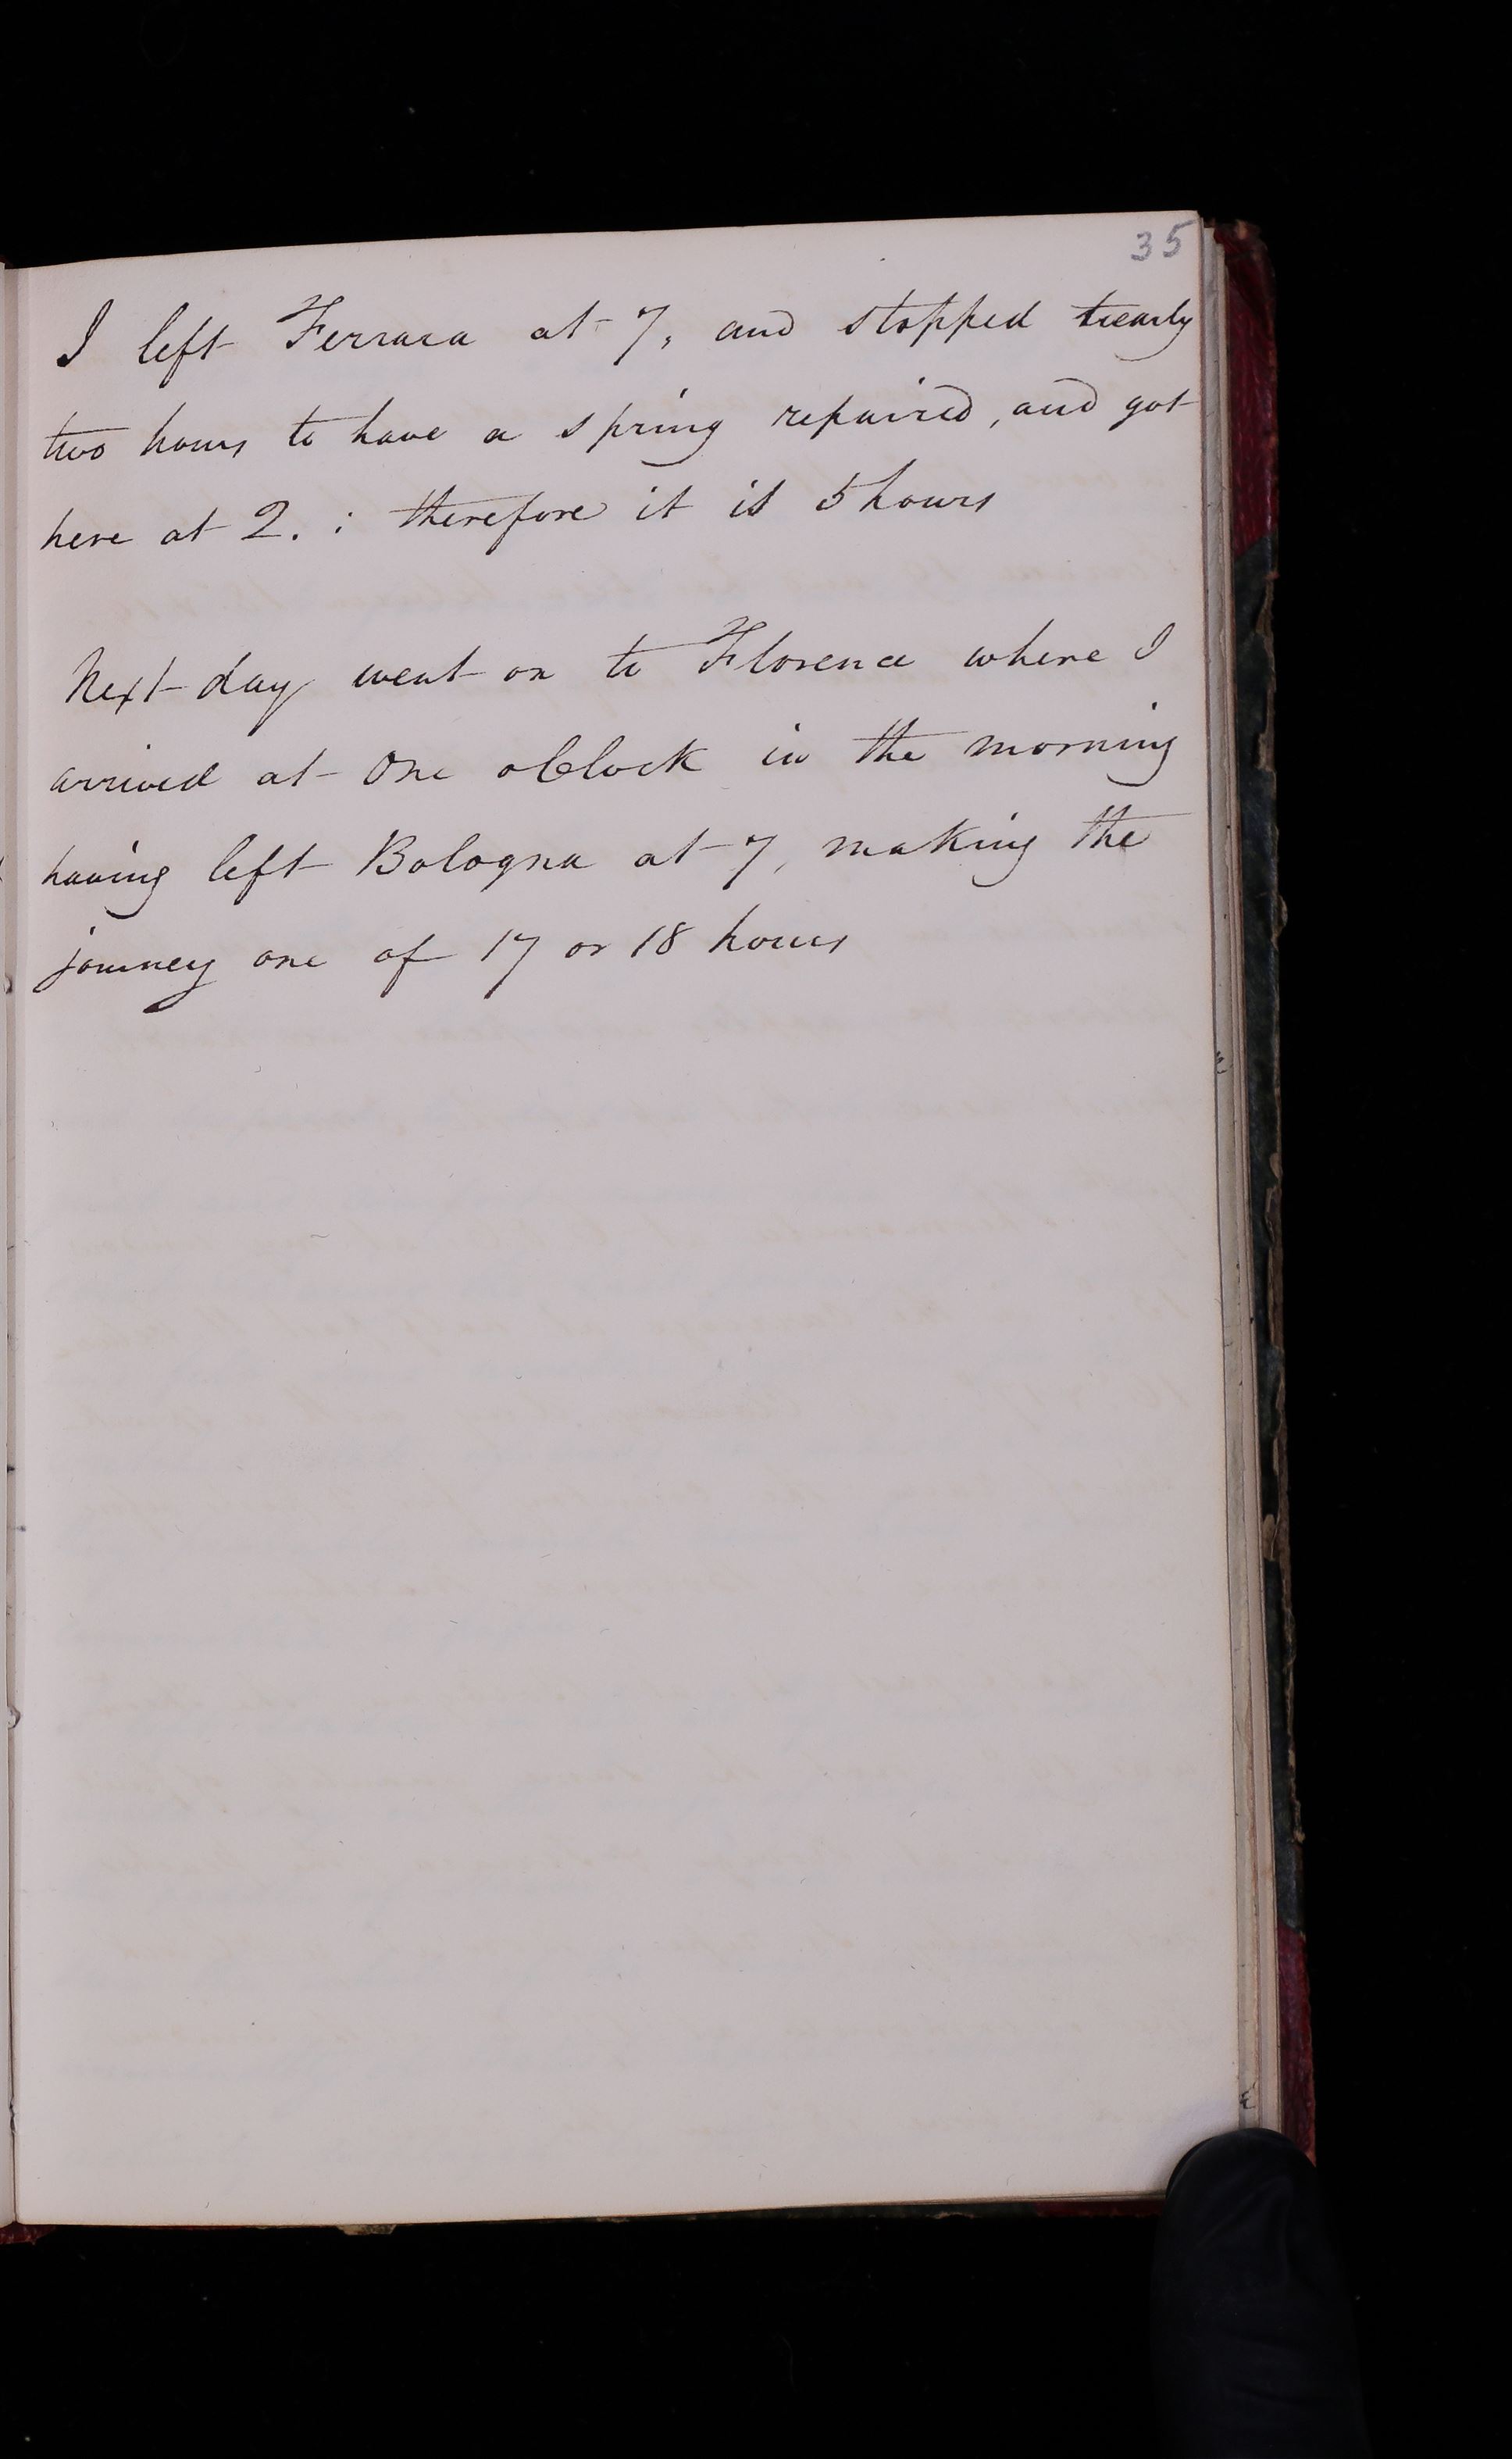 35
I left Ferrara at 7, and stopped nearly
two hours to have a spring repaired, and got
here at 2. : therefore it is 5 hours
Next day went on to Florence where I
arrived at One oClock in the morning
having left Bologna at 7, making the
journey one of 17 or 18 hours